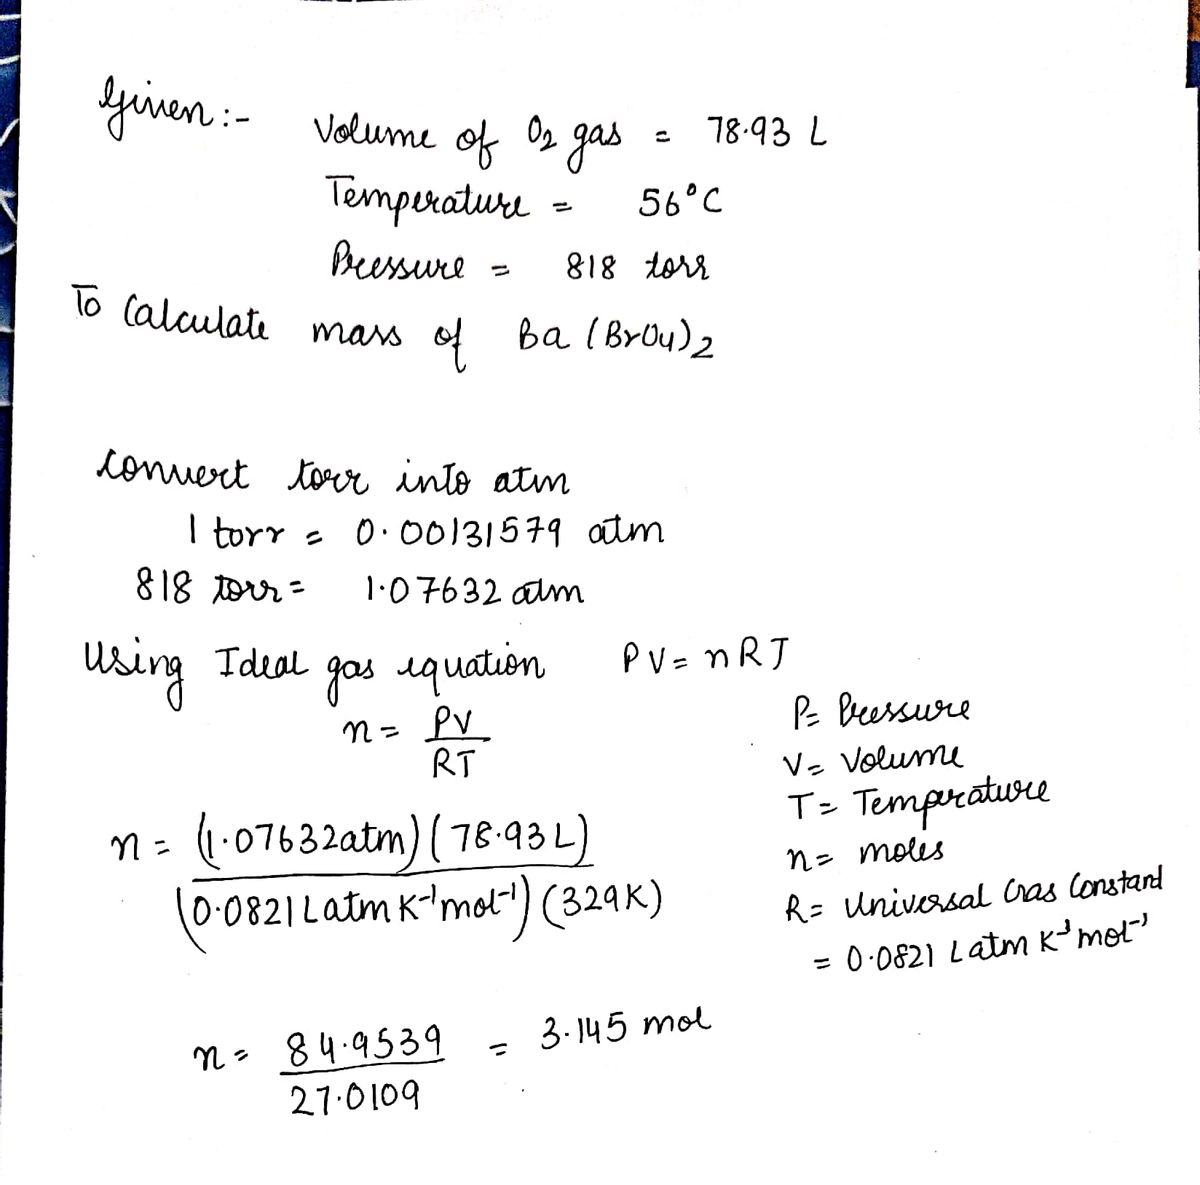 Given :-
Volume of O2 gas = 78.93 L
Temperature = 56°C
Pressure = 818 torr
To Calculate mass of Ba (BrO4)2
Convert torr into atm
1 torr = 0.00131579 atm
818 torr = 1.07632 atm
Using Ideal gas equation PV = nRT
n = PV / RT
P= Pressure
V= Volume
T= Temperature
n= moles
R= Universal Gas Constant
= 0.0821 L atm K⁻¹ mol⁻¹
n = (1.07632 atm) (78.93 L) / (0.0821 L atm K⁻¹ mol⁻¹) (329K)
n = 84.9539 / 27.0109 = 3.145 mol